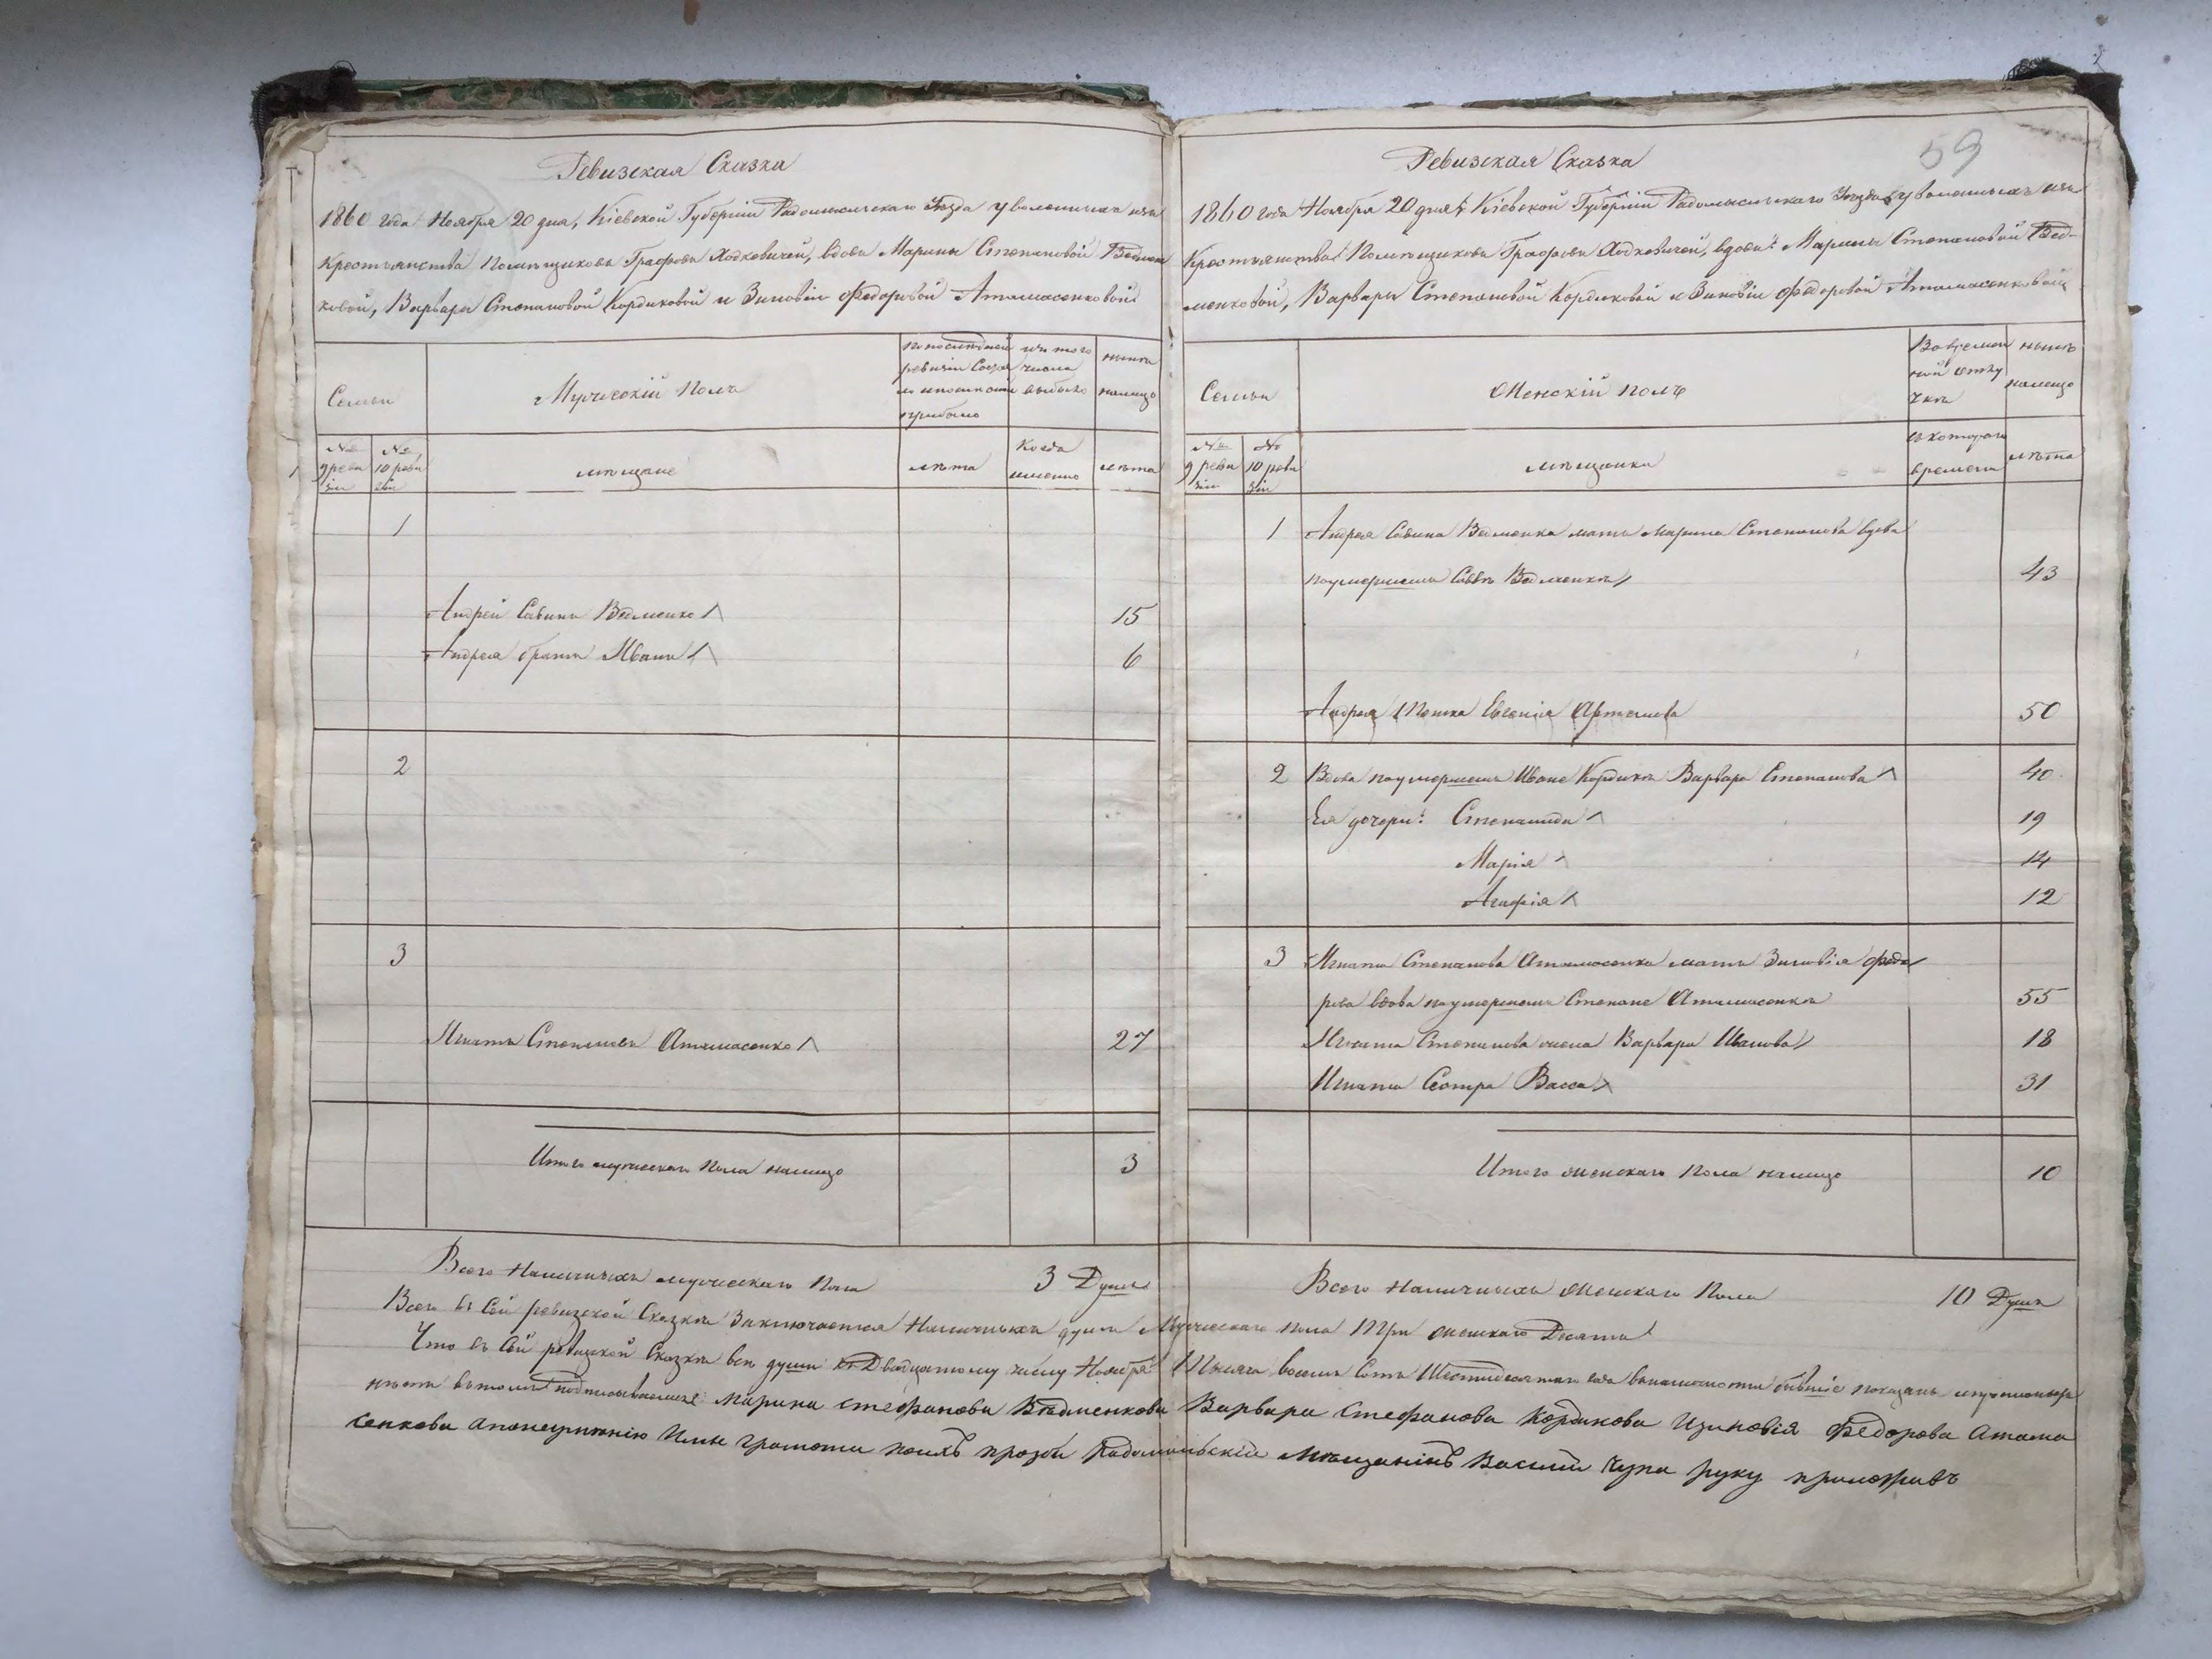 Ревизская Сказка
1860 года Ноября 20 дня, Кіевской Губерніи Радомысльскаго Уѣзда уволенныхъ изъ
Крестьянства Помѣщиковъ Графовъ Ходкевичей, вдовъ Марины Степановой Ведмен
ковой, Варвары Степановой Кордиковой и Зиновіи Федоровой Атамасенковой
Семьи
Мужескій Полъ
по последней ревизіи Состояло и после того прибыло
изъ того числа выбыло
нынѣ налицо
№ 9 ревизіи
№ 10 ревизіи
мѣщане
лѣта
Когда именно
лѣта
1
1
Андрей Савинъ Ведменко 15
Андрея братъ Иванъ 6
2
3
Игнатъ Степановъ Атамасенко 27
Итого мужескаго Пола налицо 3
Всего Наличныхъ мужескаго Пола 3 Души
59
Ревизская Сказка
1860 года Ноября 20 дня, Кіевской Губерніи Радомысльскаго Уезда уволенныхъ изъ
Крестьянства Помѣщиковъ Графовъ Ходкевичей, вдовъ: Марины Степановой Вед-
менковой, Варвары Степановой Кордиковой и Зиновіи Федоровой Атамасенковой
Семьи
Женскій полъ
Во временной отлучкѣ
нынѣ налицо
№ 9 ревизіи
№ 10 ревизіи
мѣщанки
съ котораго времени
лѣта
1 Андрея Савина Ведменка мать Марина Степанова вдова
поумершемъ Саввѣ Ведменкѣ 43
Андрея Тетка Евгенія Артемова 50
2 Вдова поумершемъ Иване Кордикѣ Варвара Степанова 40
Ея дочери: Степанида 19
Марія 14
Агафія 12
3 Игната Степанова Атамасенка мать Зиновія Федо
рова вдова поумершемъ Степане Атамасенкѣ 55
Игната Степанова жена Варвара Иванова 18
Игната Сестра Васса 31
Итого женскаго Пола налицо 10
Всего Наличныхъ Женскаго Пола 10 Душъ
Всего въ Сей ревизской Сказкѣ Заключается Наличныхъ душъ Мужескаго пола Три женскаго Десять
Что въ Сей ревизской Сказкѣ все души къ Двадцатому числу Ноября Тысяча восемь Сотъ Шестидесятаго года бывшіе показаны
нѣтъ въ томъ подписываемся Марина стефанова Ведменкова Варвара Стефанова Кордикова Изиновія Федорова Атама
сенкова апонеумѣнію Ими грамоты поихъ прозби Радомысльскій Мѣщанинъ Василій Чупа руку приложивъ